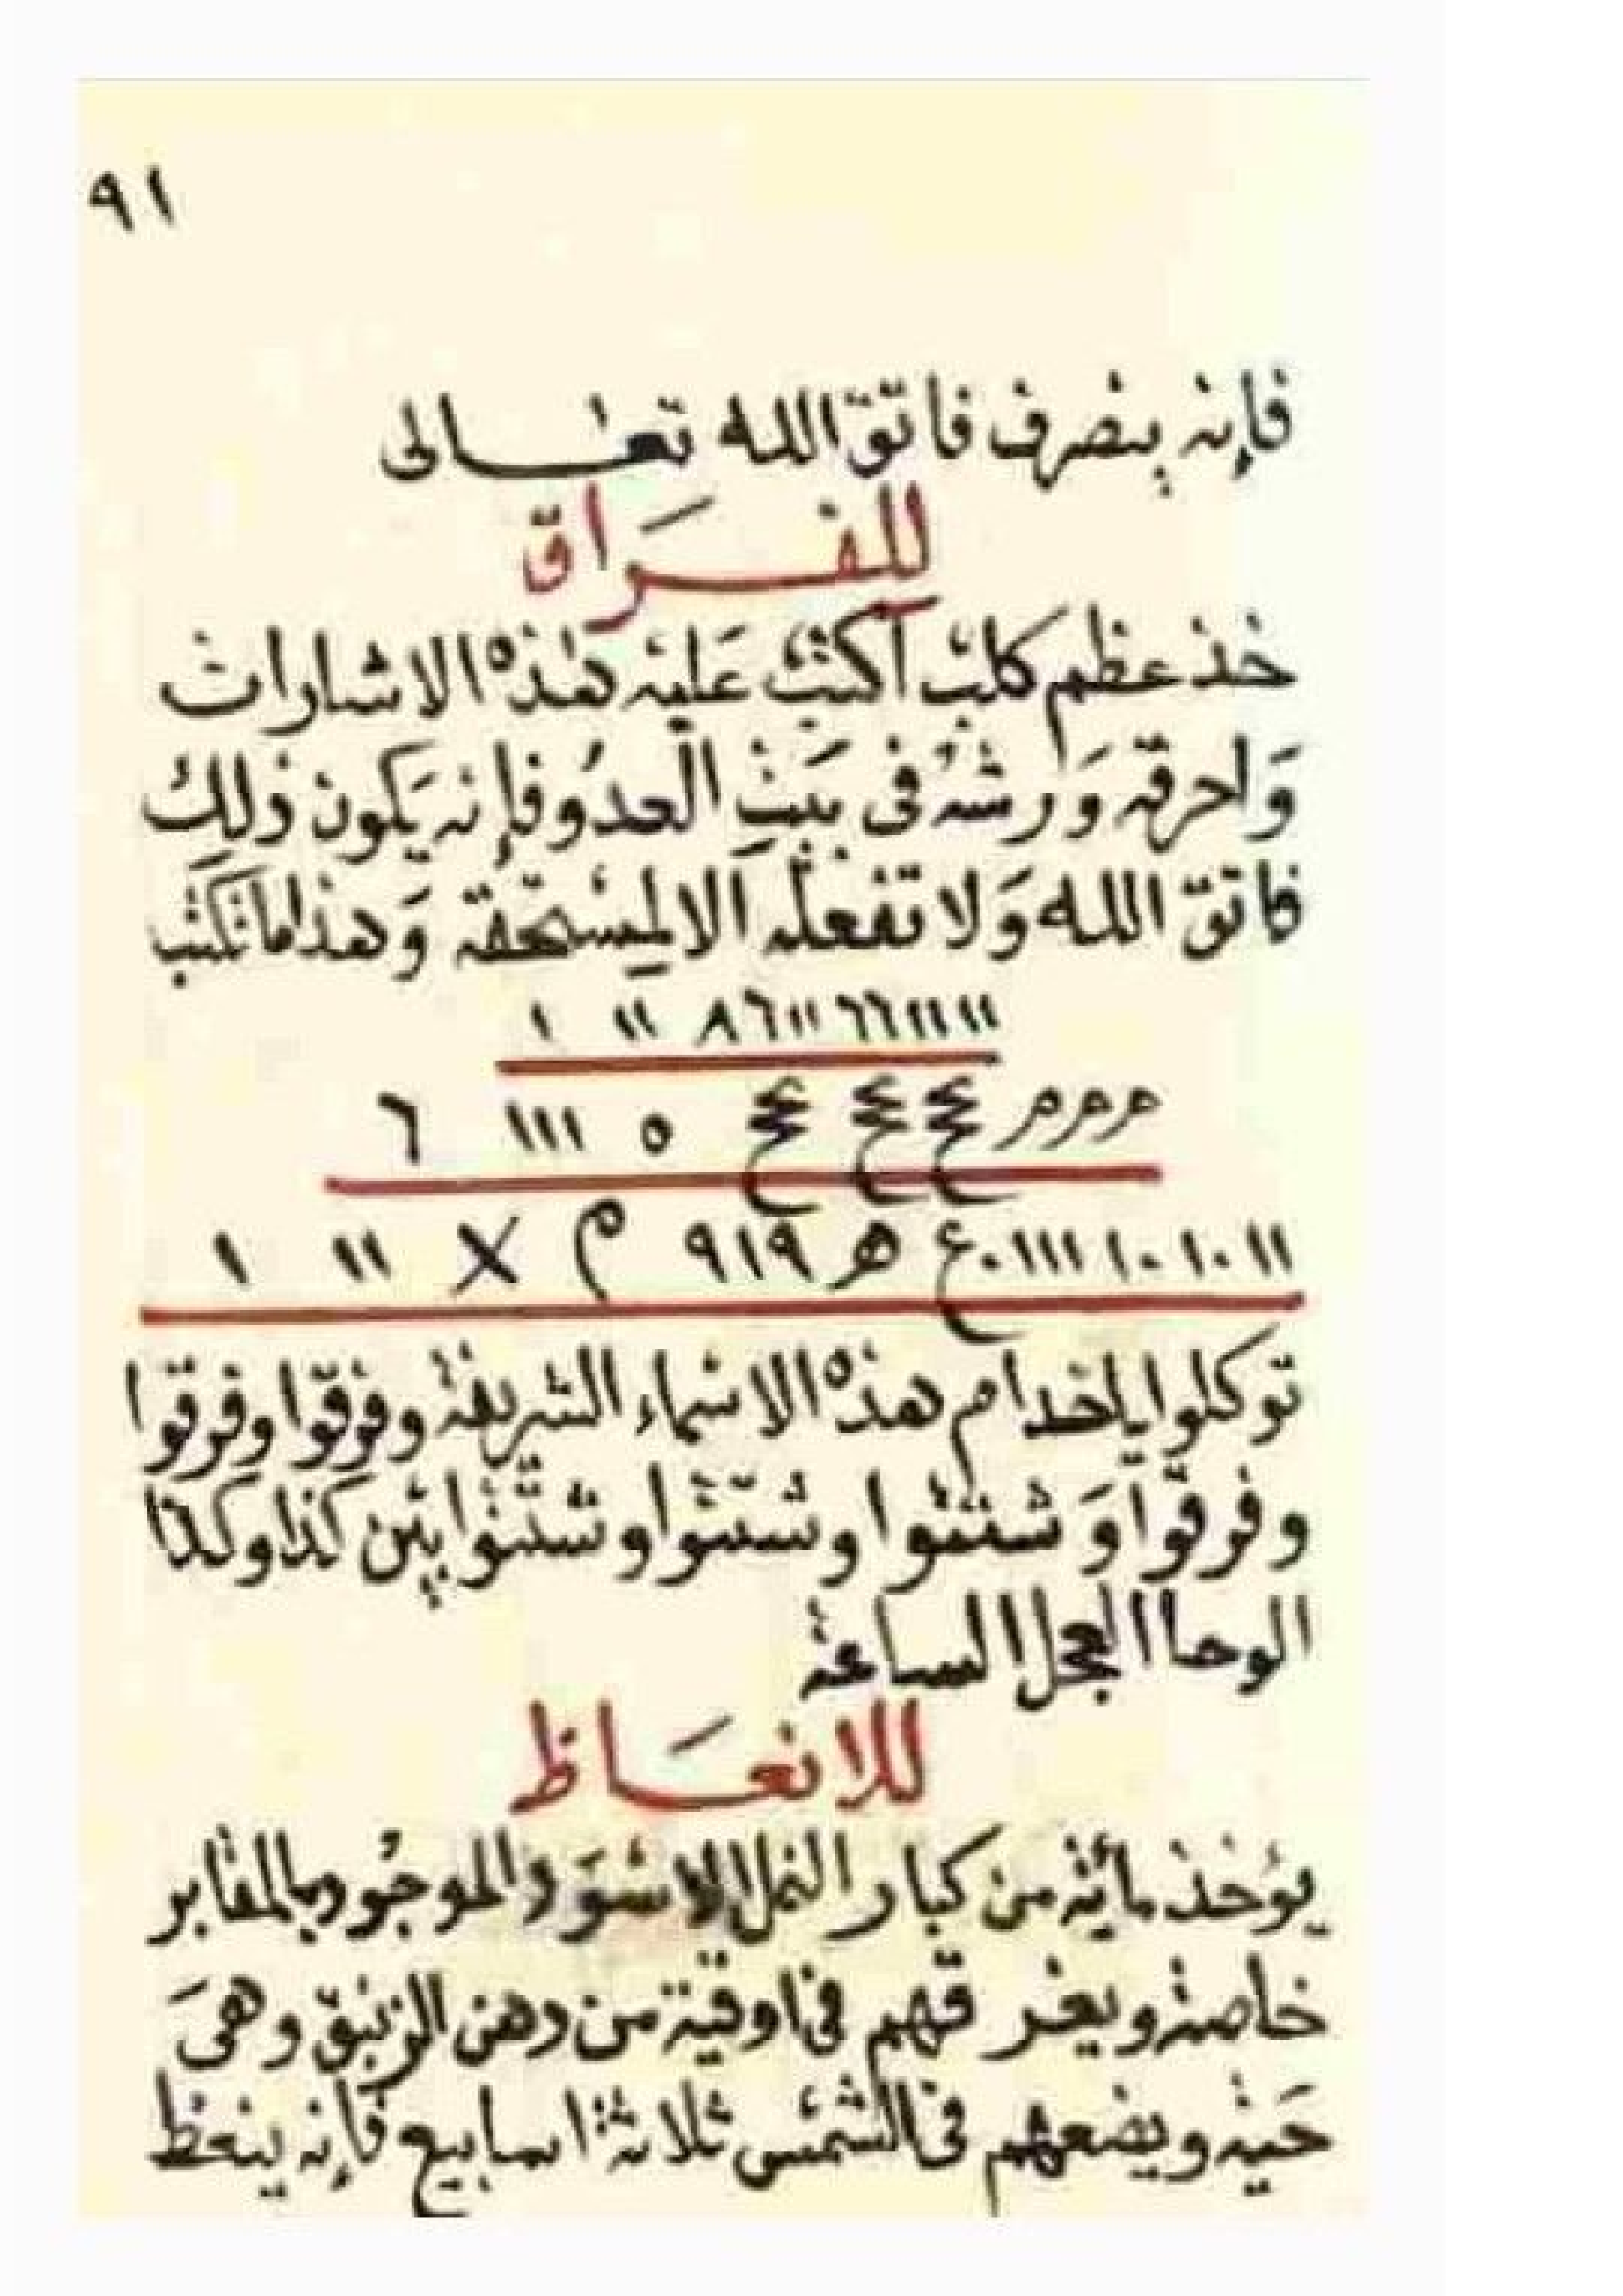 ٩١
فإنه ينصرف فاتق الله تعالى
للفراق
خذ عظم كلب اكتب عليه هذه الاشارات
واحرقه ورشه فى بيت العدو فإنه يكون ذلك
فاتق الله ولا تفعله الا لمستحقه وهذا ما تكتب
١١١١١١٦٦١١٦٨ ١١ ١
مرمرمر ٥ ١١١ ٦
١١٠١٠١ ١١١٠ع ھ ٩١٩ م X ١١ ١
توكلوا يا خدام هذه الاسماء الشريفة وفرقوا وفرقوا
وفرقوا وشتتوا وشتتوا وشتتوا بين كذا وكذا
الوحا العجل الساعة
للانعاظ
يؤخذ مائة من كبار النمل الاسود الموجود بالمقابر
خاصة ويغرقهم فى اوقية من دهن الزنبق وهى
حية ويضعهم فى الشمس ثلاثة اسابيع فإنه ينعظ